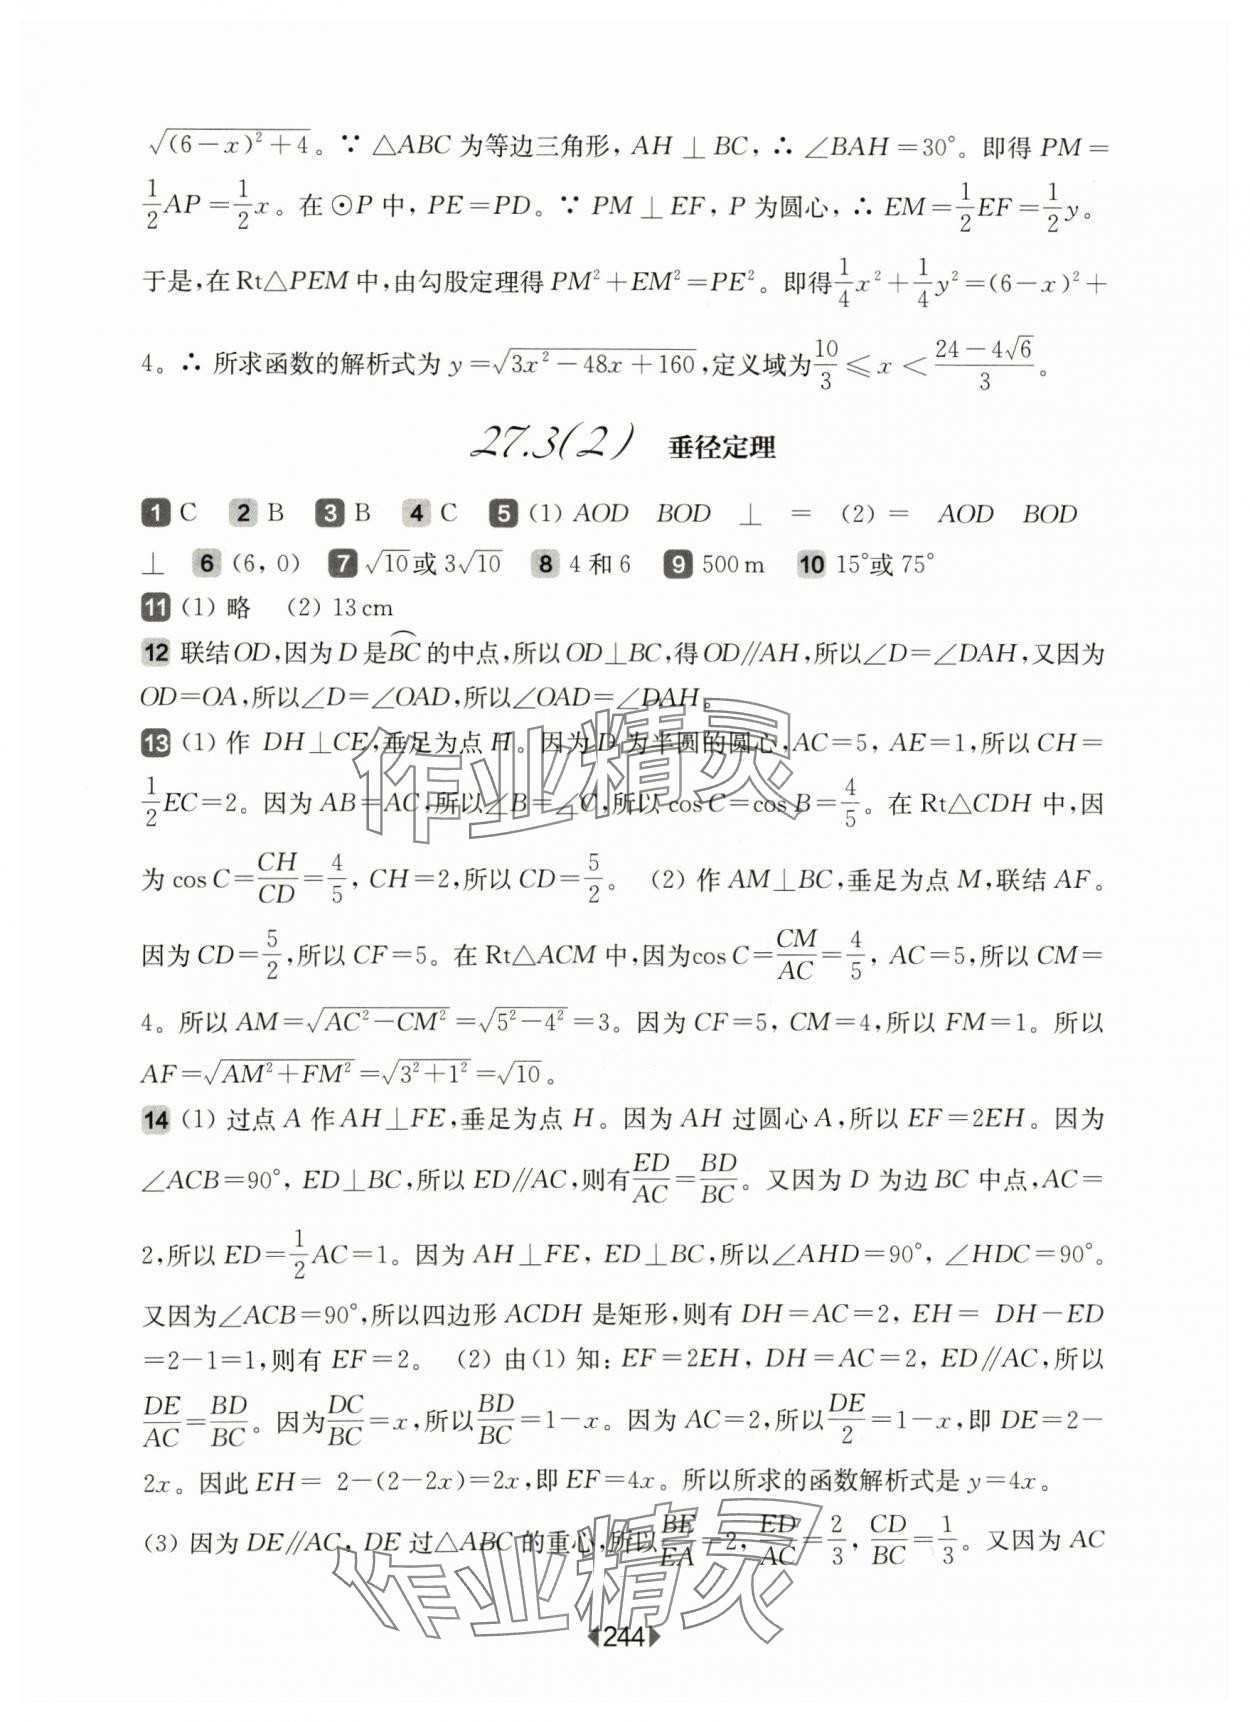 √(6－x)²＋4。∵ △ABC 为等边三角形, AH ⊥ BC, ∴ ∠BAH＝30°。即得 PM＝
1/2AP＝1/2x。在 ⊙P 中, PE＝PD。∵ PM ⊥ EF, P 为圆心, ∴ EM＝1/2EF＝1/2y。
于是,在 Rt△PEM 中,由勾股定理得 PM²＋EM²＝PE²。即得1/4x²＋1/4y²＝(6－x)²＋
4。∴ 所求函数的解析式为 y＝√3x²－48x＋160,定义域为10/3≤x＜(24－4√6)/3。
27.3(2) 垂径定理
1 C 2 B 3 B 4 C 5 (1) AOD BOD ⊥ ＝ (2)＝ AOD BOD
⊥ 6 (6, 0) 7 √10或 3√10 8 4 和 6 9 500 m 10 15°或 75°
11 (1) 略 (2) 13 cm
12 联结OD,因为 D 是BC⌒的中点,所以 OD⊥BC,得 OD∥AH,所以∠D＝∠DAH,又因为
OD＝OA,所以∠D＝∠OAD,所以∠OAD＝∠DAH。
13 (1) 作 DH⊥CE,垂足为点 H。因为 D 为半圆的圆心, AC＝5, AE＝1,所以 CH＝
1/2EC＝2。因为 AB＝AC,所以∠B＝∠C,所以 cos C＝cos B＝4/5。在 Rt△CDH 中,因
为 cos C＝CH/CD＝4/5, CH＝2,所以 CD＝5/2。 (2) 作 AM⊥BC,垂足为点 M,联结 AF。
因为 CD＝5/2,所以 CF＝5。在 Rt△ACM 中,因为cos C＝CM/AC＝4/5, AC＝5,所以 CM＝
4。所以 AM＝√AC²－CM²＝√5²－4²＝3。因为 CF＝5, CM＝4,所以 FM＝1。所以
AF＝√AM²＋FM²＝√3²＋1²＝√10。
14 (1) 过点 A 作 AH⊥FE,垂足为点 H。因为 AH 过圆心 A,所以 EF＝2EH。因为
∠ACB＝90°, ED⊥BC,所以 ED∥AC,则有ED/AC＝BD/BC。又因为 D 为边 BC 中点, AC＝
2,所以 ED＝1/2AC＝1。因为 AH⊥FE, ED⊥BC,所以∠AHD＝90°, ∠HDC＝90°。
又因为∠ACB＝90°,所以四边形 ACDH 是矩形,则有 DH＝AC＝2, EH＝ DH－ED
＝2－1＝1,则有 EF＝2。 (2) 由(1)知: EF＝2EH, DH＝AC＝2, ED∥AC,所以
DE/AC＝BD/BC。因为DC/BC＝x,所以BD/BC＝1－x。因为 AC＝2,所以DE/2＝1－x,即 DE＝2－
2x。因此 EH＝ 2－(2－2x)＝2x,即 EF＝4x。所以所求的函数解析式是 y＝4x。
(3) 因为 DE∥AC, DE 过△ABC 的重心,所以BE/EA＝2, ED/AC＝2/3, CD/BC＝1/3。又因为 AC
244
作业精灵
作业精灵